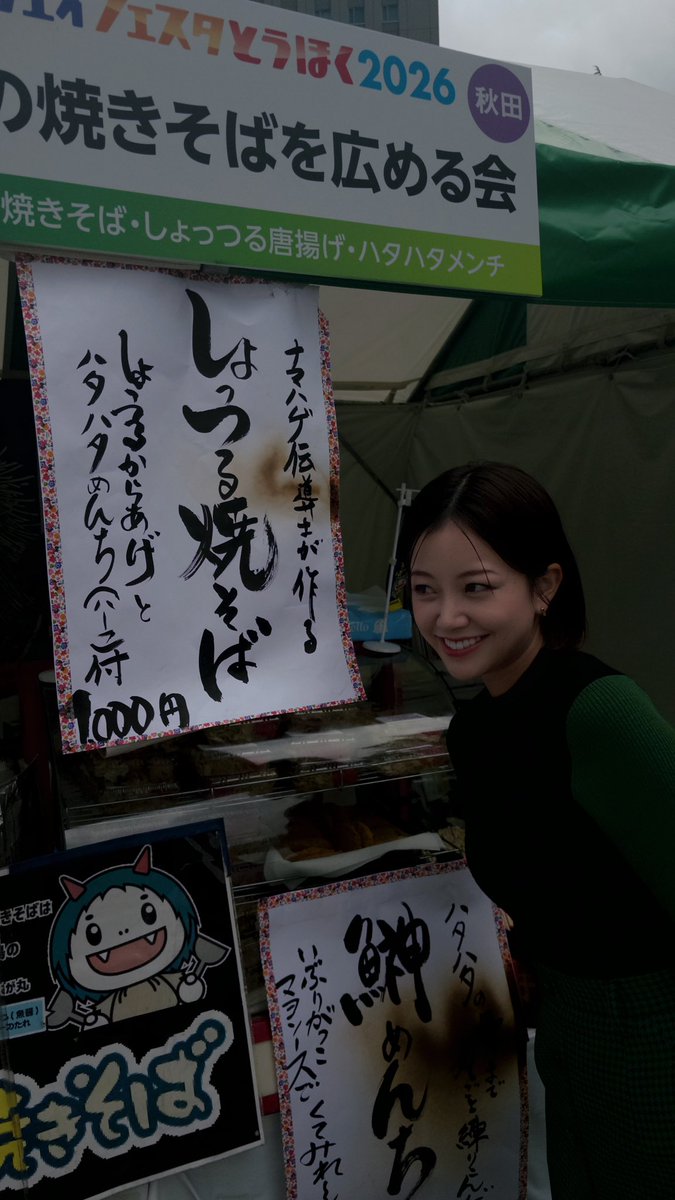 フェスタとうほく2026
秋田
の焼きそばを広める会
焼きそば・しょっつる唐揚げ・ハタハタメンチ
ナマハゲ伝導士が作る
しょっつる焼そば
しょっつるからあげと
ハタハタめんち(ハーフ)付
1,000円
きそばは
の
が丸
のたれ
焼きそば
ハタハタの
鰰めんち
いぶりがっこ
マヨソースで